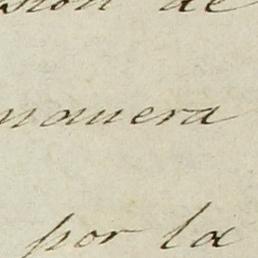 sion de
manera
por la